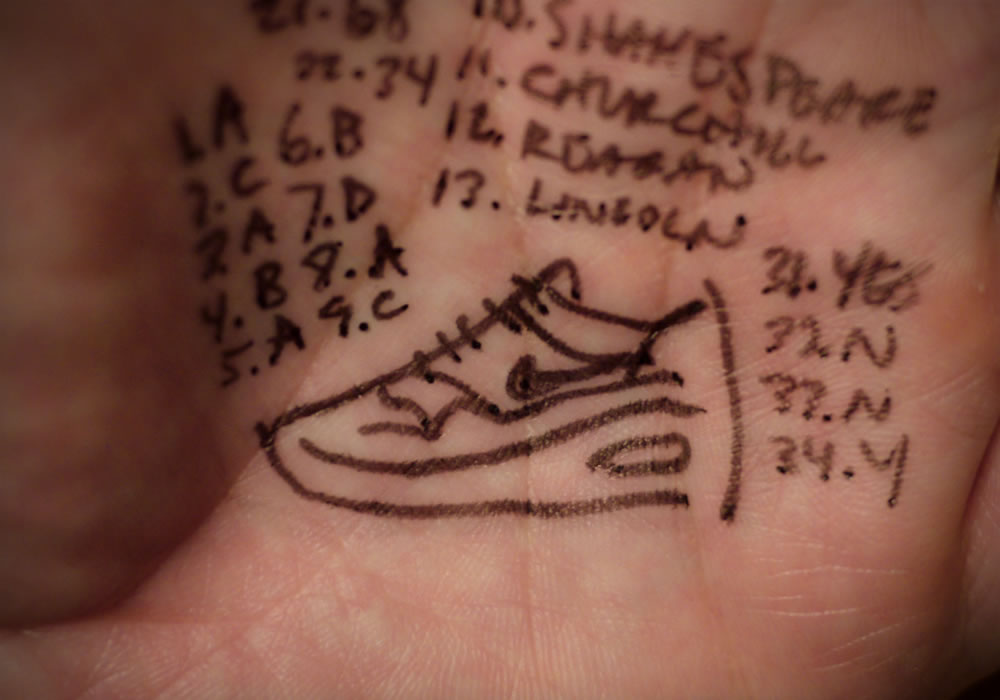 21.68
22.34
1.A 6.B
2.C 7.D
3.A 8.A
4.B 9.C
5.A
10. SHAKESPEARE
11. CHURCHILL
12. REAGAN
13. LINCOLN
31. YES
32. N
33. N
34. Y